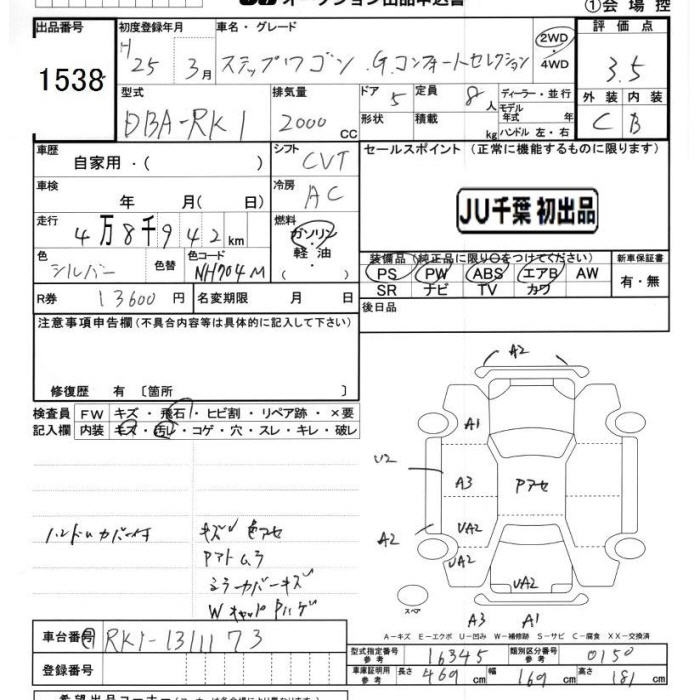 オークション出品申込書
①会場控
出品番号 初度登録年月 車名・グレード 評価点
1538 H25 3月 ステップワゴン .G.コンフォートセレクション 2WD・4WD 3.5
型式 排気量 ドア 5 定員 8人 ディーラー・並行 外装 内装
DBA-RK1 2000 CC 形状 積載 kg モデル年式 年式 ハンドル 左・右 C B
車歴 自家用・( ) シフト CVT セールスポイント (正常に機能するものに限ります)
車検 年 月( 日) 冷房 AC
JU千葉 初出品
走行 4万8千942km 燃料 ガソリン・軽油・( )
色 シルバー 色替 色コード NH704M 装備品 (純正品に限り○をつけてください) 新車保証書
PS PW ABS エアB AW 有・無
SR ナビ TV カワ
R券 13600円 名変期限 月 日 後日品
注意事項申告欄 (不具合内容等は具体的に記入して下さい)
修復歴 有 [箇所 ]
検査員 FW キズ・飛石・ヒビ割・リペア跡・×要
記入欄 内装 キズ・汚レ・コゲ・穴・スレ・キレ・破レ
A2
A1
U2
A3 Pアセ
A2 UA2
UA2
UA2
A3 A1
スペア
ハンドルカバー付 キズ 色アセ
Pアトムラ
ミラーカバーキズ
WキャップPハゲ
A−キズ E−エクボ U−凹み W−補修跡 S−サビ C−腐食 XX−交換済
車台番号 RK1-1311173
型式指定番号 参考 16345 類別区分番号 参考 0150
登録番号 車庫証明用 参考 長さ 469cm 幅 169cm 高さ 181cm
希望出品コーナー